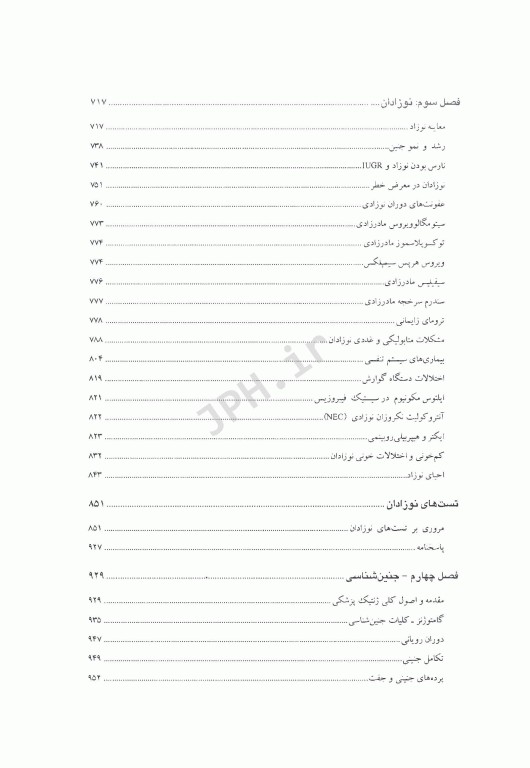 فصل سوم: نوزادان .... ۷۱۷
معاینه نوزاد ۷۱۷
رشد و نمو جنین ۷۳۸
نارس بودن نوزاد و IUGR ۷۴۱
نوزادان در معرض خطر ۷۵۱
عفونت‌های دوران نوزادی ۷۶۰
سیتومگالوویروس مادرزادی ۷۷۳
توکسوپلاسموز مادرزادی ۷۷۴
ویروس هرپس سیمپلکس ۷۷۴
سیفیلیس مادرزادی ۷۷۶
سندرم سرخجه مادرزادی ۷۷۷
ترومای زایمانی ۷۷۸
مشکلات متابولیکی و غددی نوزادان ۷۸۸
بیماری‌های سیستم تنفسی ۸۰۴
اختلالات دستگاه گوارش ۸۱۹
ایلئوس مکونیوم در سیستیک فیبروزیس ۸۲۱
آنتروکولیت نکروزان نوزادی (NEC) ۸۲۲
ایکتر و هیپربیلی‌روبینمی ۸۲۳
کم‌خونی و اختلالات خونی نوزادان ۸۳۲
احیای نوزاد ۸۴۳
تست‌های نوزادان ۸۵۱
مروری بر تست‌های نوزادان ۸۵۱
پاسخنامه ۹۲۷
فصل چهارم - جنین‌شناسی ۹۲۹
مقدمه و اصول کلی ژنتیک پزشکی ۹۲۹
گامتوژنز ـ کلیات جنین‌شناسی ۹۳۵
دوران رویانی ۹۴۷
تکامل جنینی ۹۴۹
پرده‌های جنینی و جفت ۹۵۴
JPH.ir